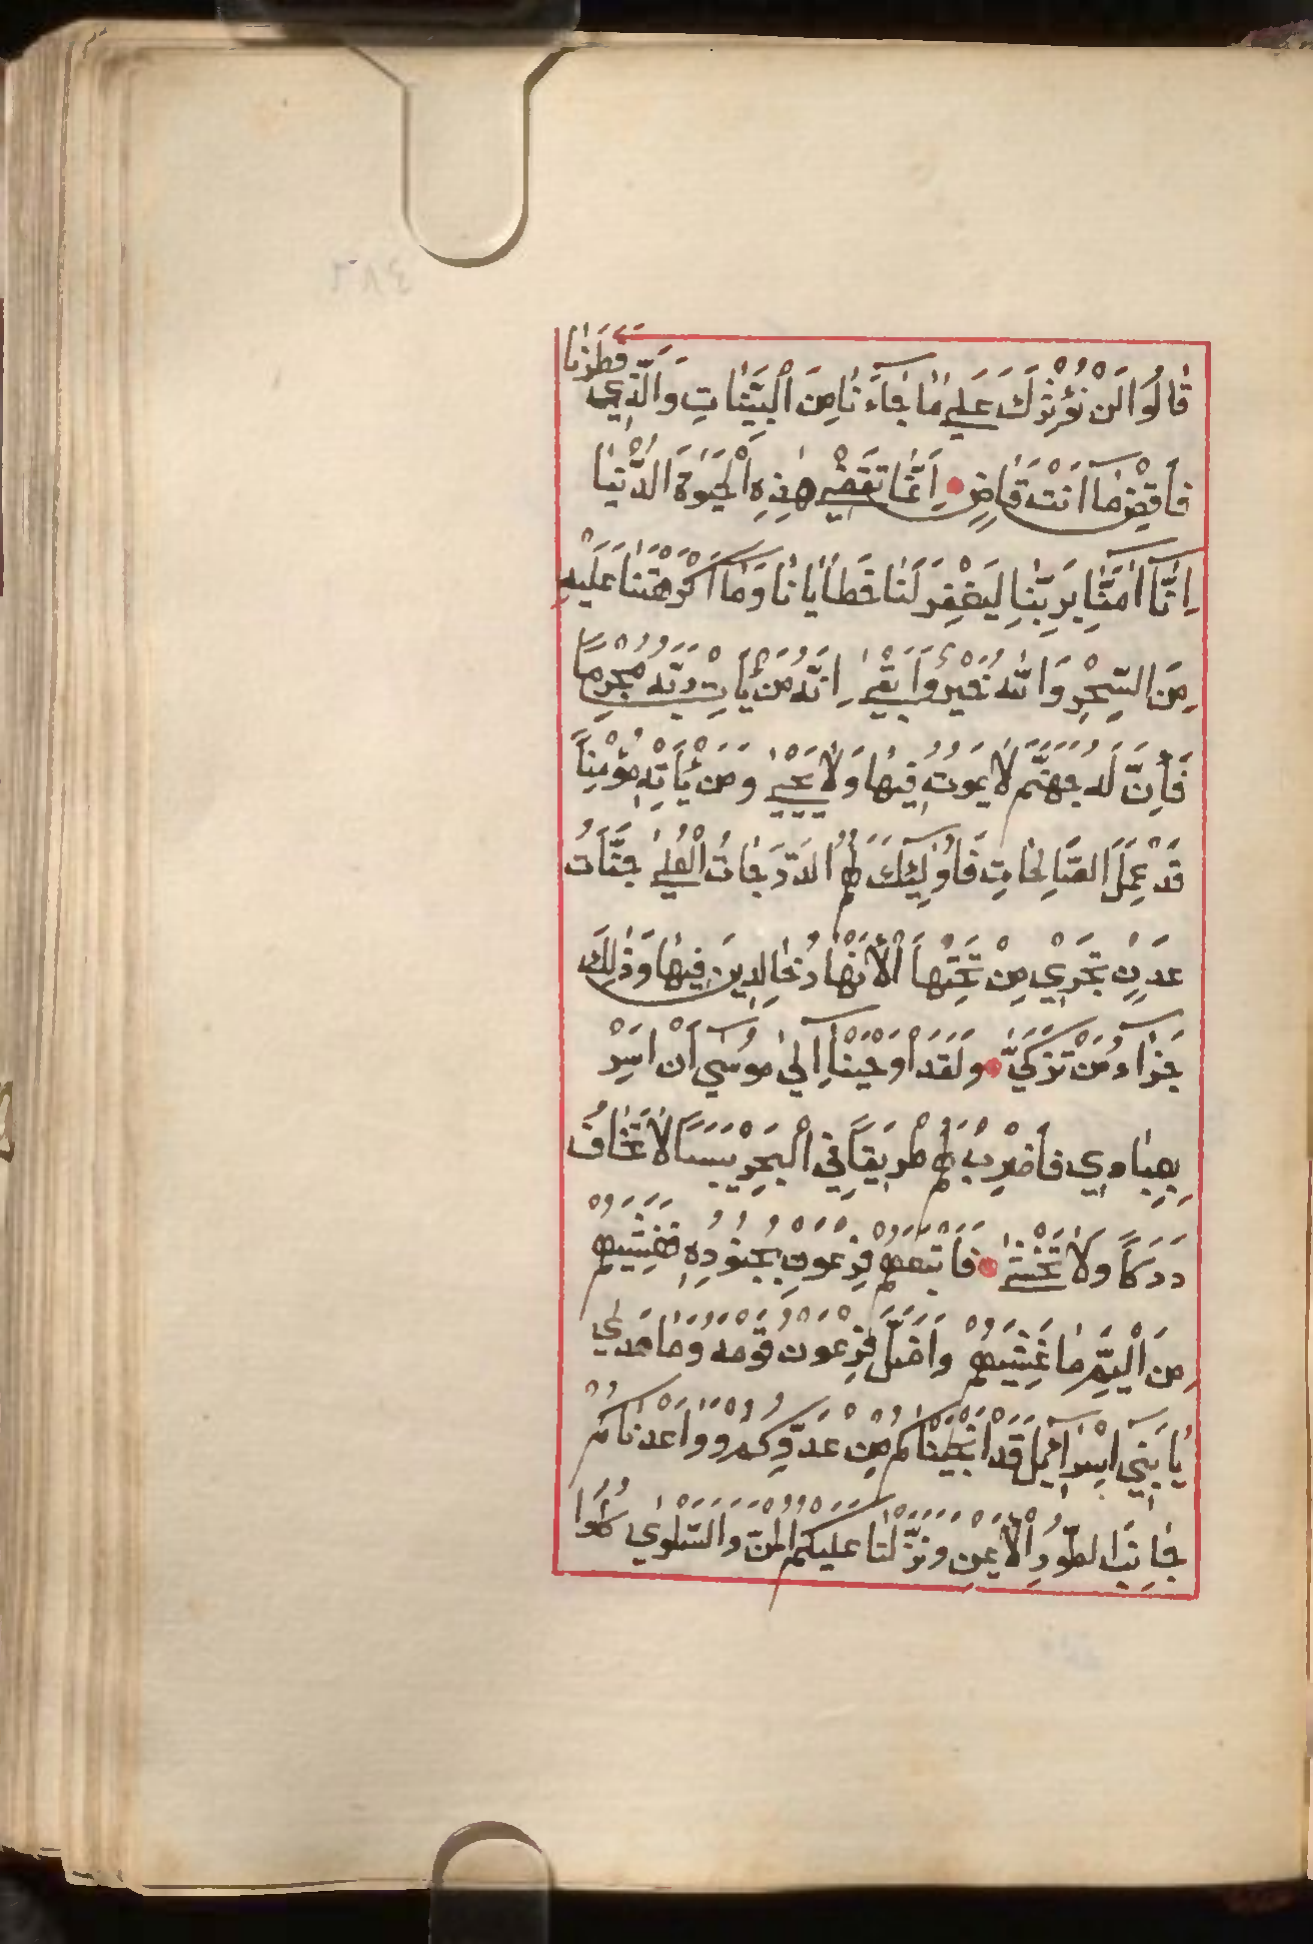 قَالُوا لَنْ نُؤْثِرَكَ عَلَي مَا جَآءَنَا مِنَ الْبَيِّنَاتِ وَالَّذِي فَطَرَنَا
فَاقْضِ مَآ اَنْتَ قَاضٍ اِنَّمَا تَقْضِي هٰذِهِ الْحَيٰوةَ الدُّنْيَا
اِنَّآ اٰمَنَّا بِرَبِّنَا لِيَغْفِرَ لَنَا خَطَايَانَا وَمَآ اَكْرَهْتَنَا عَلَيْهِ
مِنَ السِّحْرِ وَاللّٰهُ خَيْرٌ وَاَبْقٰي اِنَّهُ مَنْ يَأْتِ رَبَّهُ مُجْرِمًا
فَاِنَّ لَهُ جَهَنَّمَ لَا يَمُوتُ فِيهَا وَلَا يَحْيٰي وَمَنْ يَأْتِهِ مُؤْمِنًا
قَدْ عَمِلَ الصَّالِحَاتِ فَاُولٰٓئِكَ لَهُمُ الدَّرَجَاتُ الْعُلٰي جَنَّاتُ
عَدْنٍ تَجْرِي مِنْ تَحْتِهَا الْأَنْهَارُ خَالِدِينَ فِيهَا وَذٰلِكَ
جَزَآءُ مَنْ تَزَكّٰي وَلَقَدْ اَوْحَيْنَآ اِلٰي مُوسٰٓي اَنْ اَسْرِ
بِعِبَادِي فَاضْرِبْ لَهُمْ طَرِيقًا فِي الْبَحْرِ يَبَسًا لَا تَخَافُ
دَرَكًا وَلَا تَخْشٰي فَاَتْبَعَهُمْ فِرْعَوْنُ بِجُنُودِهِ فَغَشِيَهُمْ
مِنَ الْيَمِّ مَا غَشِيَهُمْ وَاَضَلَّ فِرْعَوْنُ قَوْمَهُ وَمَا هَدٰي
يَا بَنِيٓ اِسْرَآئِيلَ قَدْ اَنْجَيْنَاكُمْ مِنْ عَدُوِّكُمْ وَوَاعَدْنَاكُمْ
جَانِبَ الطُّورِ الْأَيْمَنِ وَنَزَّلْنَا عَلَيْكُمُ الْمَنَّ وَالسَّلْوٰي كُلُوا